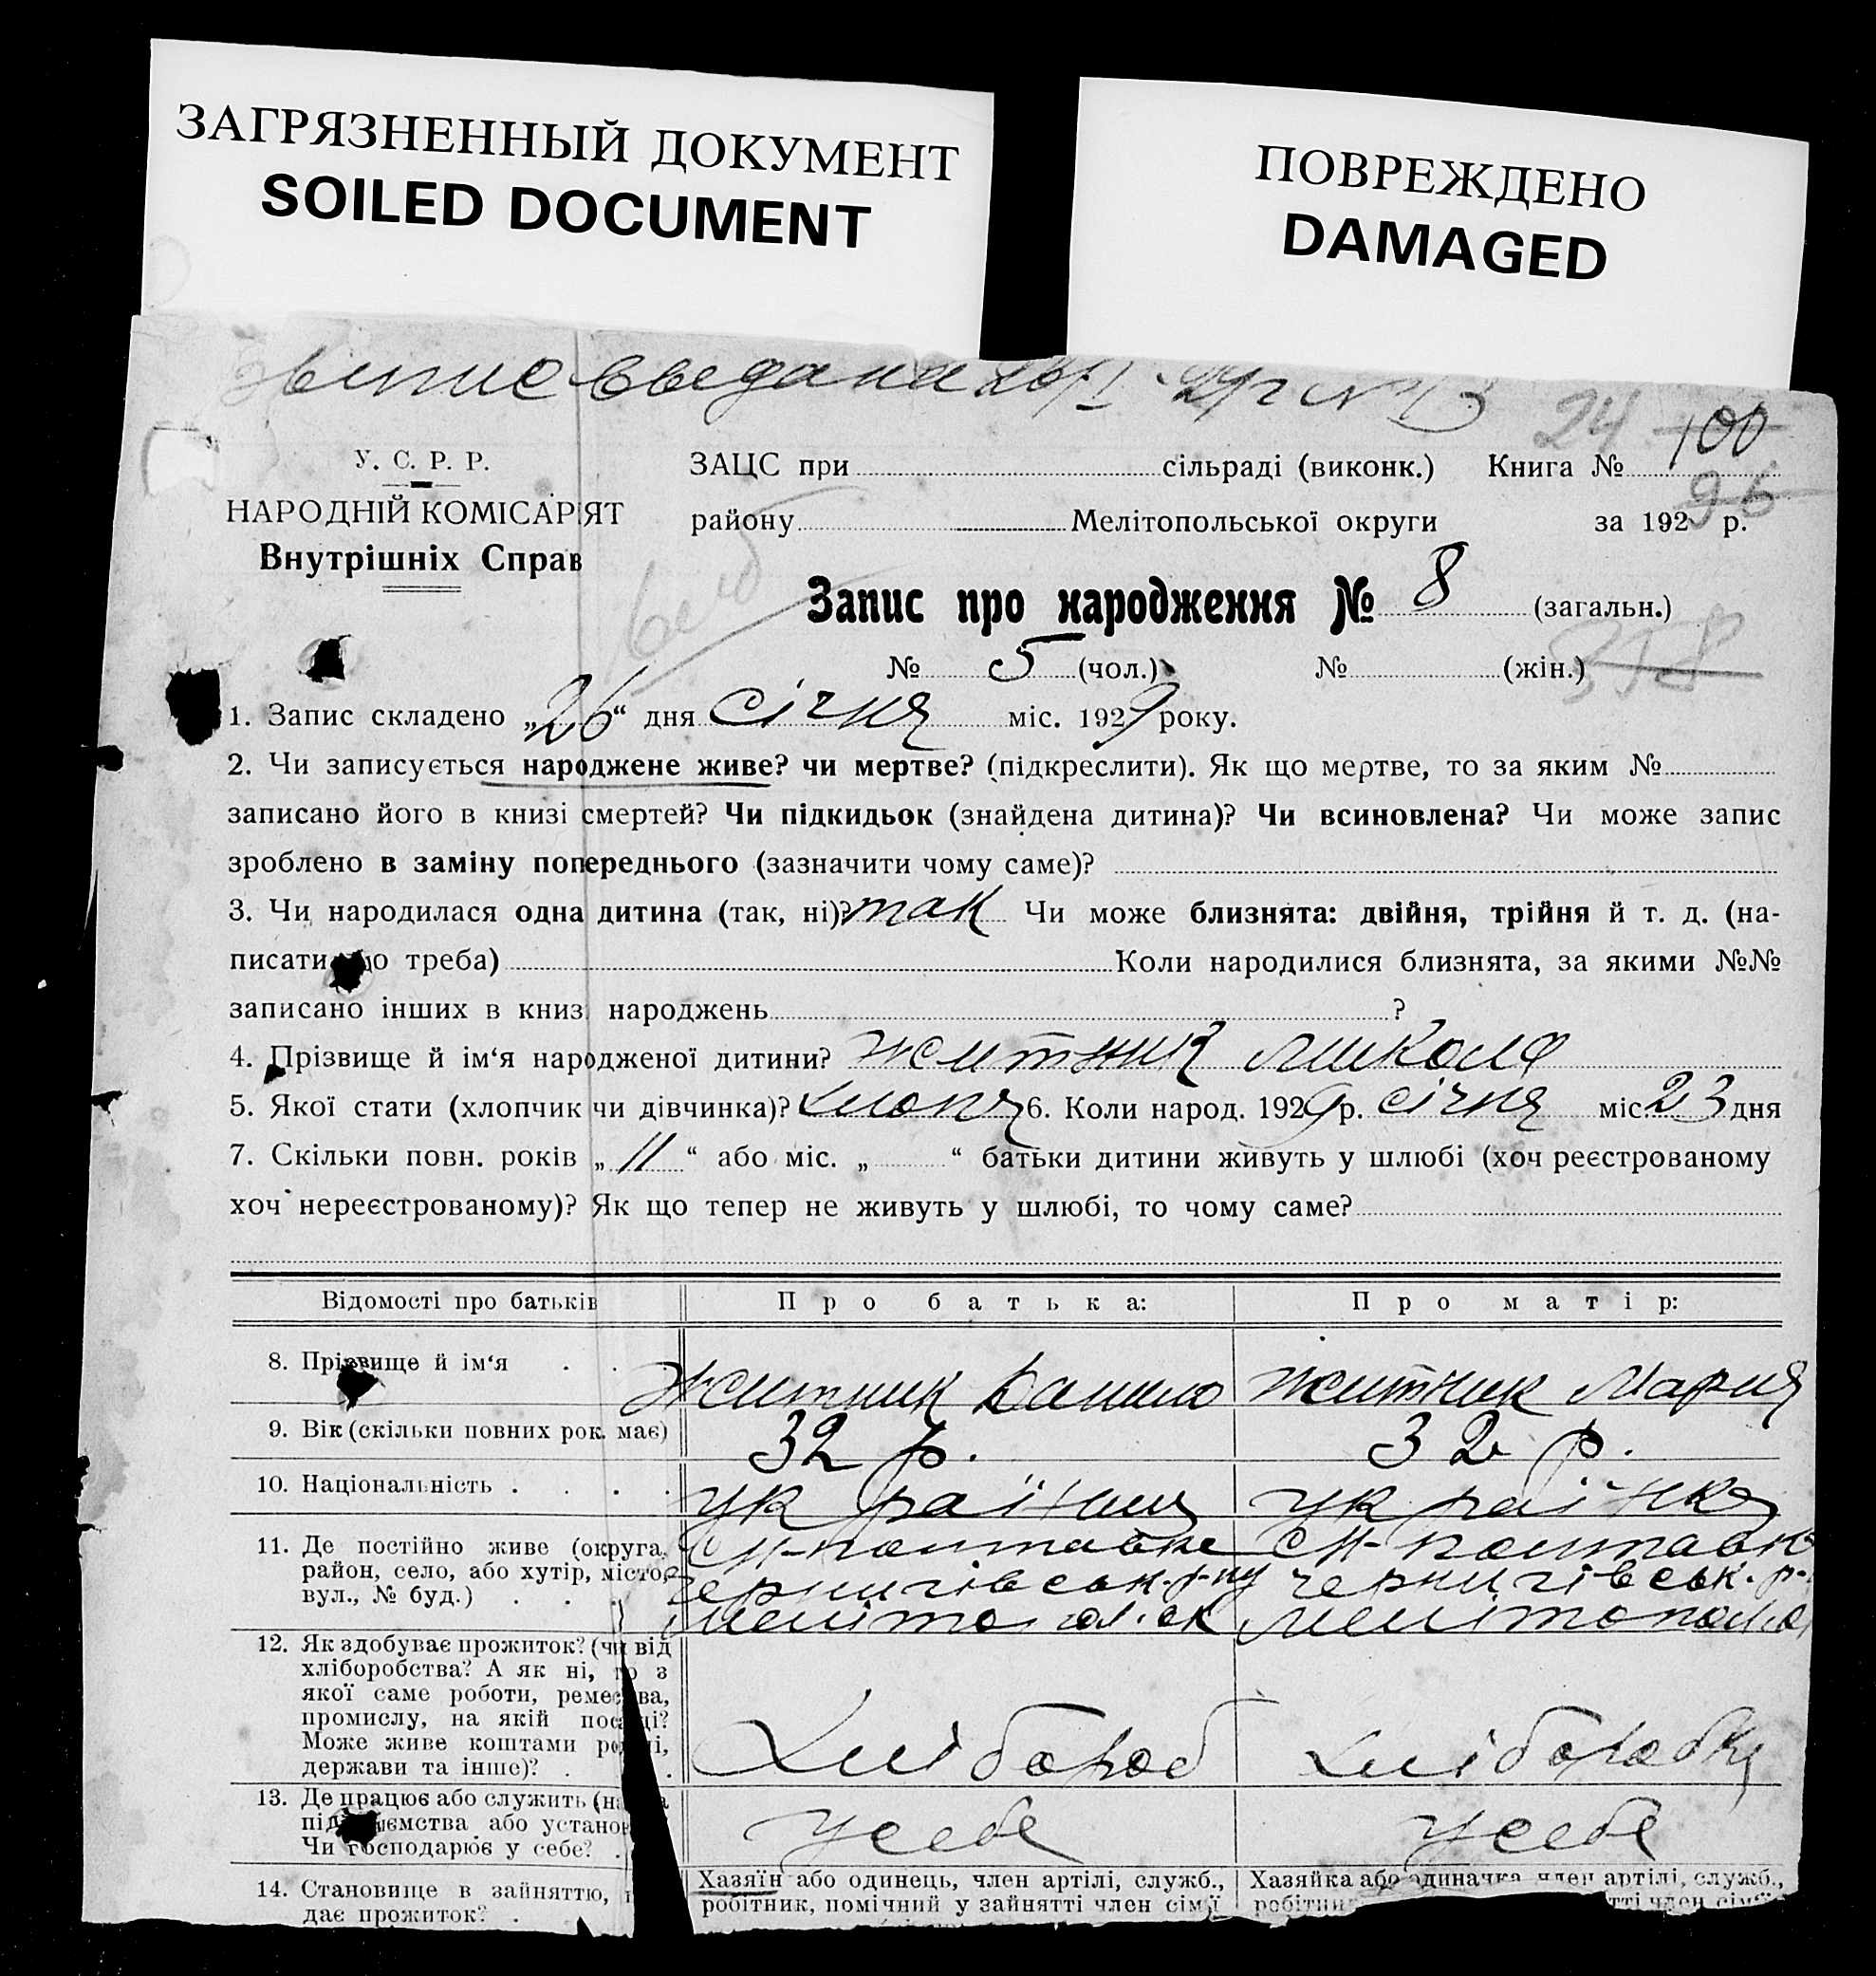 ЗАГРЯЗНЕННЫЙ ДОКУМЕНТ
SOILED DOCUMENT
ПОВРЕЖДЕНО
DAMAGED
24 100
У. С. Р. Р.
ЗАЦС при сільраді (виконк.) Книга №
96
НАРОДНІЙ КОМІСАРІЯТ
району Мелітопольської округи за 192 р.
Внутрішніх Справ
Запис про народження № 8 (загальн.)
№ 5 (чол.) № (жін.)
318
1. Запис складено „26“ дня січня міс. 1929 року.
2. Чи записується народжене живе? чи мертве? (підкреслити). Як що мертве, то за яким №
записано його в книзі смертей? Чи підкидьок (знайдена дитина)? Чи всиновлена? Чи може запис
зроблено в заміну попереднього (зазначити чому саме)?
3. Чи народилася одна дитина (так, ні)? так Чи може близнята: двійня, трійня й т. д. (на-
писати що треба) Коли народилися близнята, за якими №№
записано інших в книзі народжень ?
4. Прізвище й ім‘я народженої дитини? Житник Микола
5. Якої стати (хлопчик чи дівчинка)? хлопч 6. Коли народ. 1929 р. січня міс. 23 дня
7. Скільки повн. років „11“ або міс. „ “ батьки дитини живуть у шлюбі (хоч реєстрованому
хоч нереєстрованому)? Як що тепер не живуть у шлюбі, то чому саме?
Відомості про батьків
Про батька:
Про матір:
8. Прізвище й ім‘я . . .
Житник Данило
Житник Мария
9. Вік (скільки повних рок. має)
32 р.
32 р.
10. Національність . . . .
українец
українка
11. Де постійно живе (округа,
район, село, або хутір, місто,
вул., № буд.) . . .
Чернигівськ. р-ну
Мелітопольск
Чернигівськ. р-
Мелітопольс
12. Як здобуває прожиток? (чи від
хліборобства? А як ні, то з
якої саме роботи, ремества,
промислу, на якій посаді?
Може живе коштами родні,
держави та інше)? . .
Хлібороб
Хліборобка
13. Де працює або служить (назва
підприємства або установи
Чи господарює у себе? .
у себе
у себе
14. Становище в зайняттю,
дає прожиток? .
Хазяїн або одинець, член артілі, служб.,
робітник, помічний у зайнятті член сім'ї
Хазяйка або одиначка, член артілі, служб.,
робітни тті член сім'ї